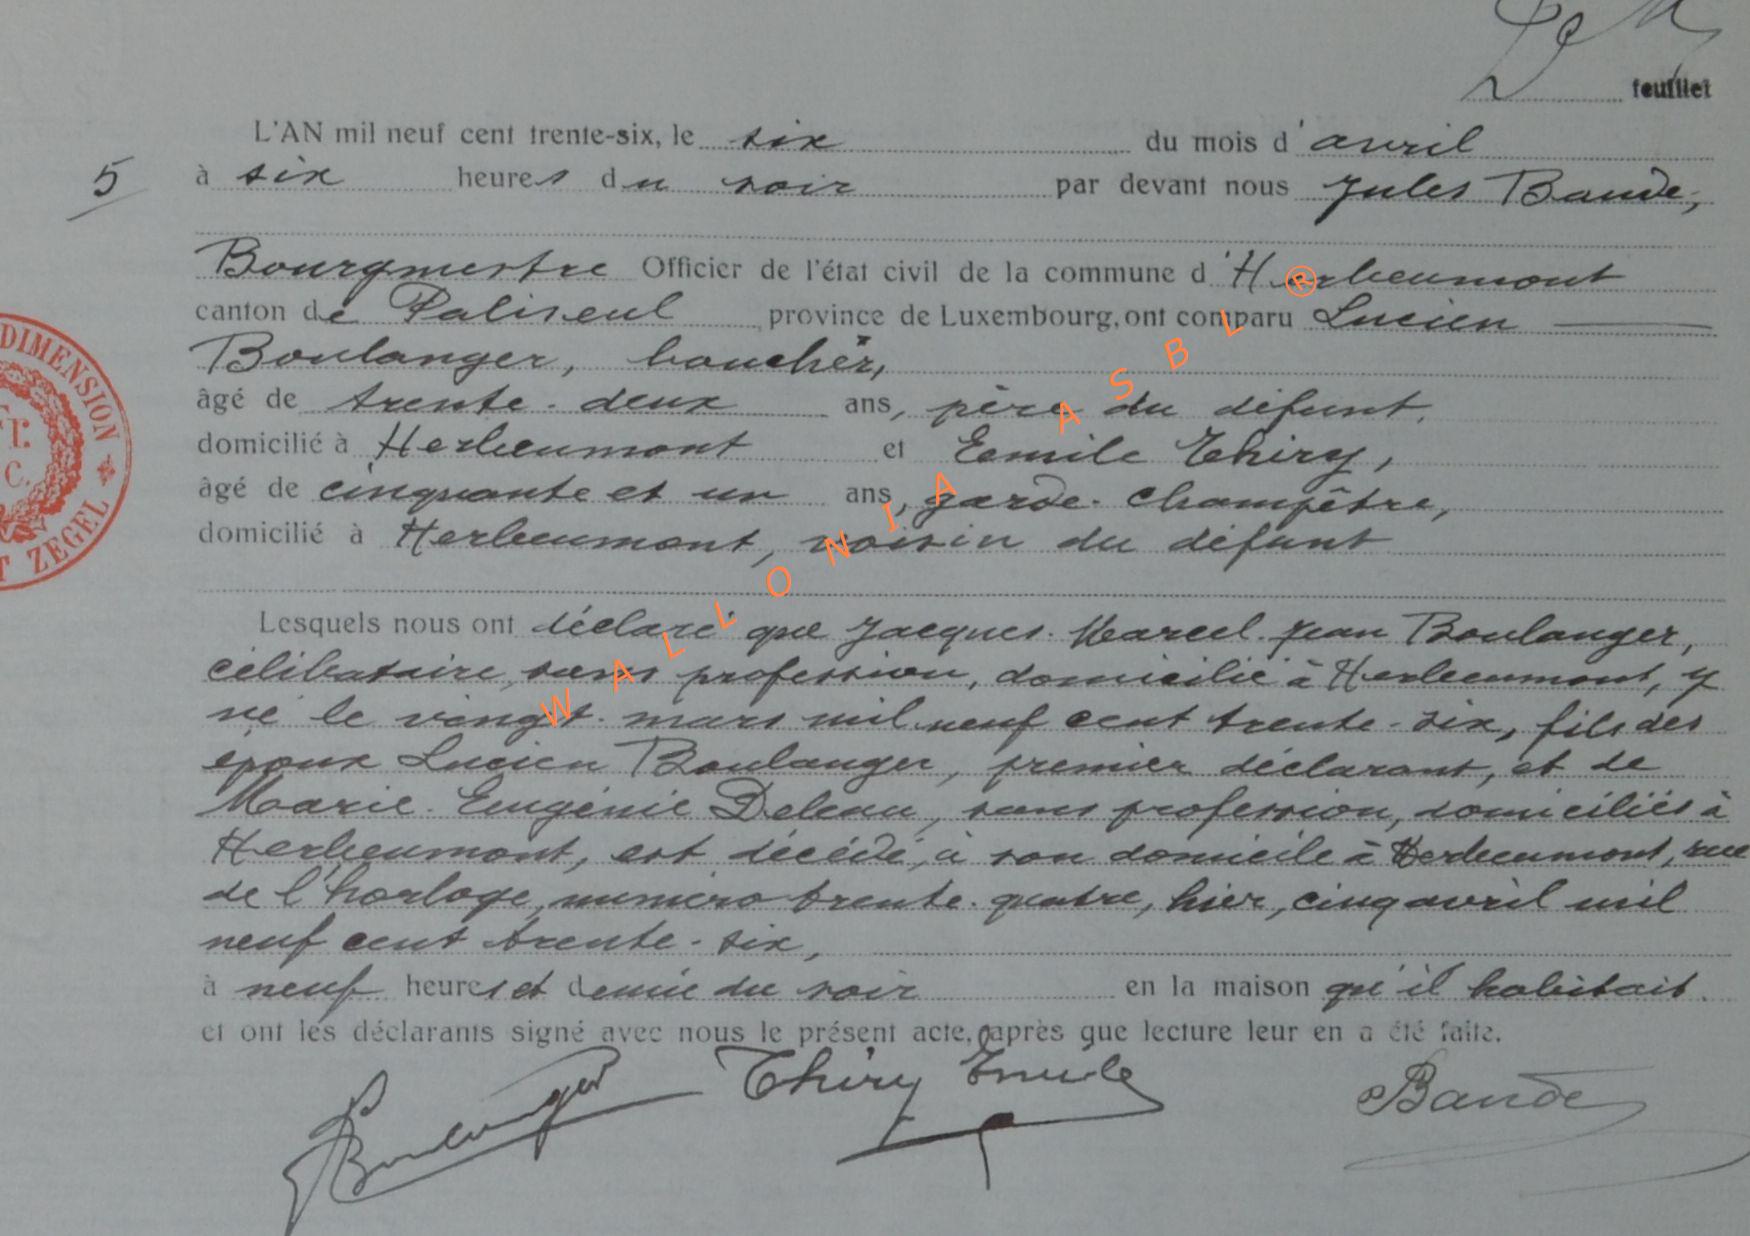 feuillet
L'AN mil neuf cent trente-six, le six du mois d'avril
5 à six heures du soir par devant nous Jules Baude,
Bourgmestre Officier de l'état civil de la commune d'Herbeumont
canton de Paliseul, province de Luxembourg, ont comparu Lucien
Boulanger, boucher,
âgé de trente-deux ans, père du défunt,
domicilié à Herbeumont et Emile Thiry,
âgé de cinquante et un ans, garde-champêtre,
domicilié à Herbeumont, voisin du défunt
Lesquels nous ont déclaré que Jacques-Marcel-Jean Boulanger,
célibataire, sans profession, domicilié à Herbeumont, y
né le vingt-mars mil neuf cent trente-six, fils des
époux Lucien Boulanger, premier déclarant, et de
Marie-Eugénie Deleau, sans profession, domiciliés à
Herbeumont, est décédé, à son domicile à Herbeumont, rue
de l'horloge, numéro trente-quatre, hier, cinq avril mil
neuf cent trente-six,
à neuf heures et demie du soir en la maison qu'il habitait.
et ont les déclarants signé avec nous le présent acte, après que lecture leur en a été faite.
Boulanger Thiry Emile Baude
DIMENSION
C.
T ZEGEL
WALLONIA ASBL ®